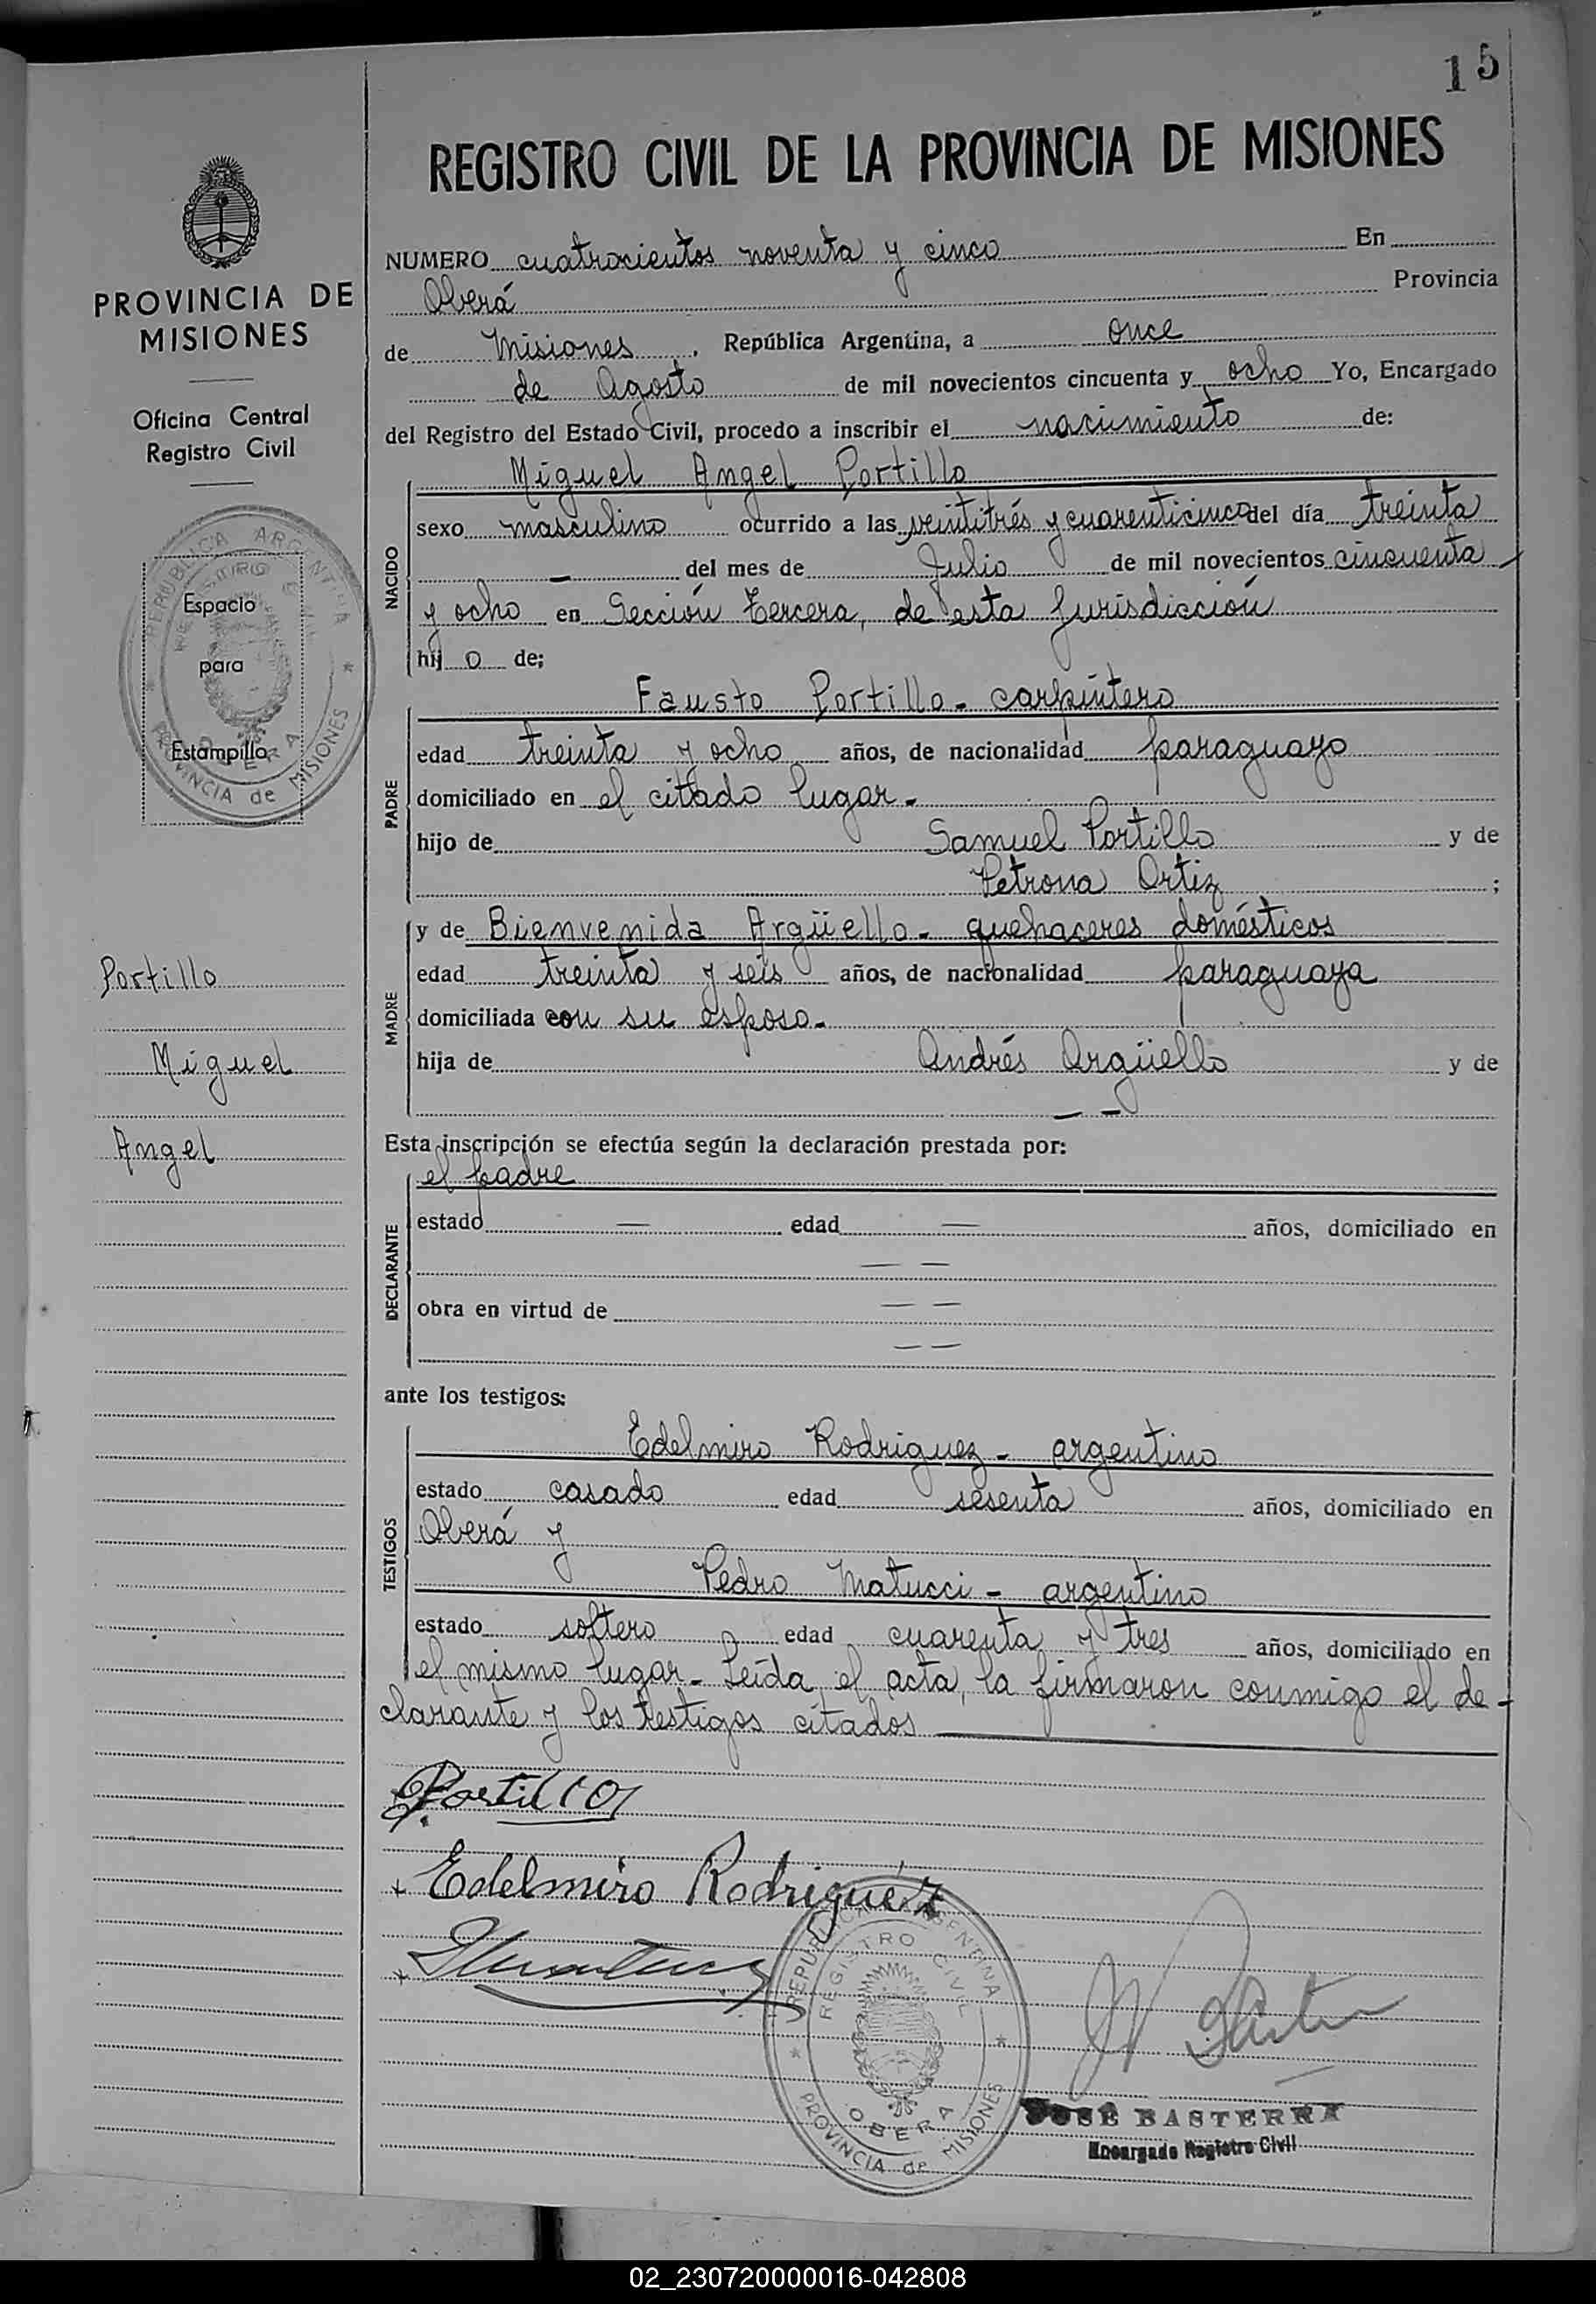 15
REGISTRO CIVIL DE LA PROVINCIA DE MISIONES
PROVINCIA DE
MISIONES
Oficina Central
Registro Civil
REPUBLICA ARGENTINA
REGISTRO CIVIL
OBERA
PROVINCIA de MISIONES
Espacio
para
Estampilla
Portillo
Miguel
Angel
NUMERO cuatrocientos noventa y cinco En
Oberá Provincia
de Misiones, República Argentina, a once
de Agosto de mil novecientos cincuenta y ocho Yo, Encargado
del Registro del Estado Civil, procedo a inscribir el nacimiento de:
NACIDO
Miguel Angel Portillo
sexo masculino ocurrido a las veintitrés y cuarenticinco del día treinta
— del mes de Julio de mil novecientos cincuenta
y ocho en Sección Tercera, de esta Jurisdicción
hijo de;
PADRE
Fausto Portillo - carpintero
edad treinta y ocho años, de nacionalidad paraguayo
domiciliado en el citado lugar.-
hijo de Samuel Portillo y de
Petrona Ortiz ;
MADRE
y de Bienvenida Argüello - quehaceres domésticos
edad treinta y seis años, de nacionalidad paraguaya
domiciliada con su esposo.-
hija de Andrés Argüello y de
— —
Esta inscripción se efectúa según la declaración prestada por:
DECLARANTE
el padre
estado — edad — años, domiciliado en
— —
obra en virtud de — —
— —
ante los testigos:
TESTIGOS
Edelmiro Rodriguez - argentino
estado casado edad sesenta años, domiciliado en
Oberá y
Pedro Matucci - argentino
estado soltero edad cuarenta y tres años, domiciliado en
el mismo lugar - Leída el acta, la firmaron conmigo el de-
clarante y los testigos citados
Portillo
Edelmiro Rodriguez
REPUBLICA ARGENTINA
REGISTRO CIVIL
OBERA
PROVINCIA de MISIONES
JOSÉ BASTERRA
Encargado Registro Civil
02_230720000016-042808